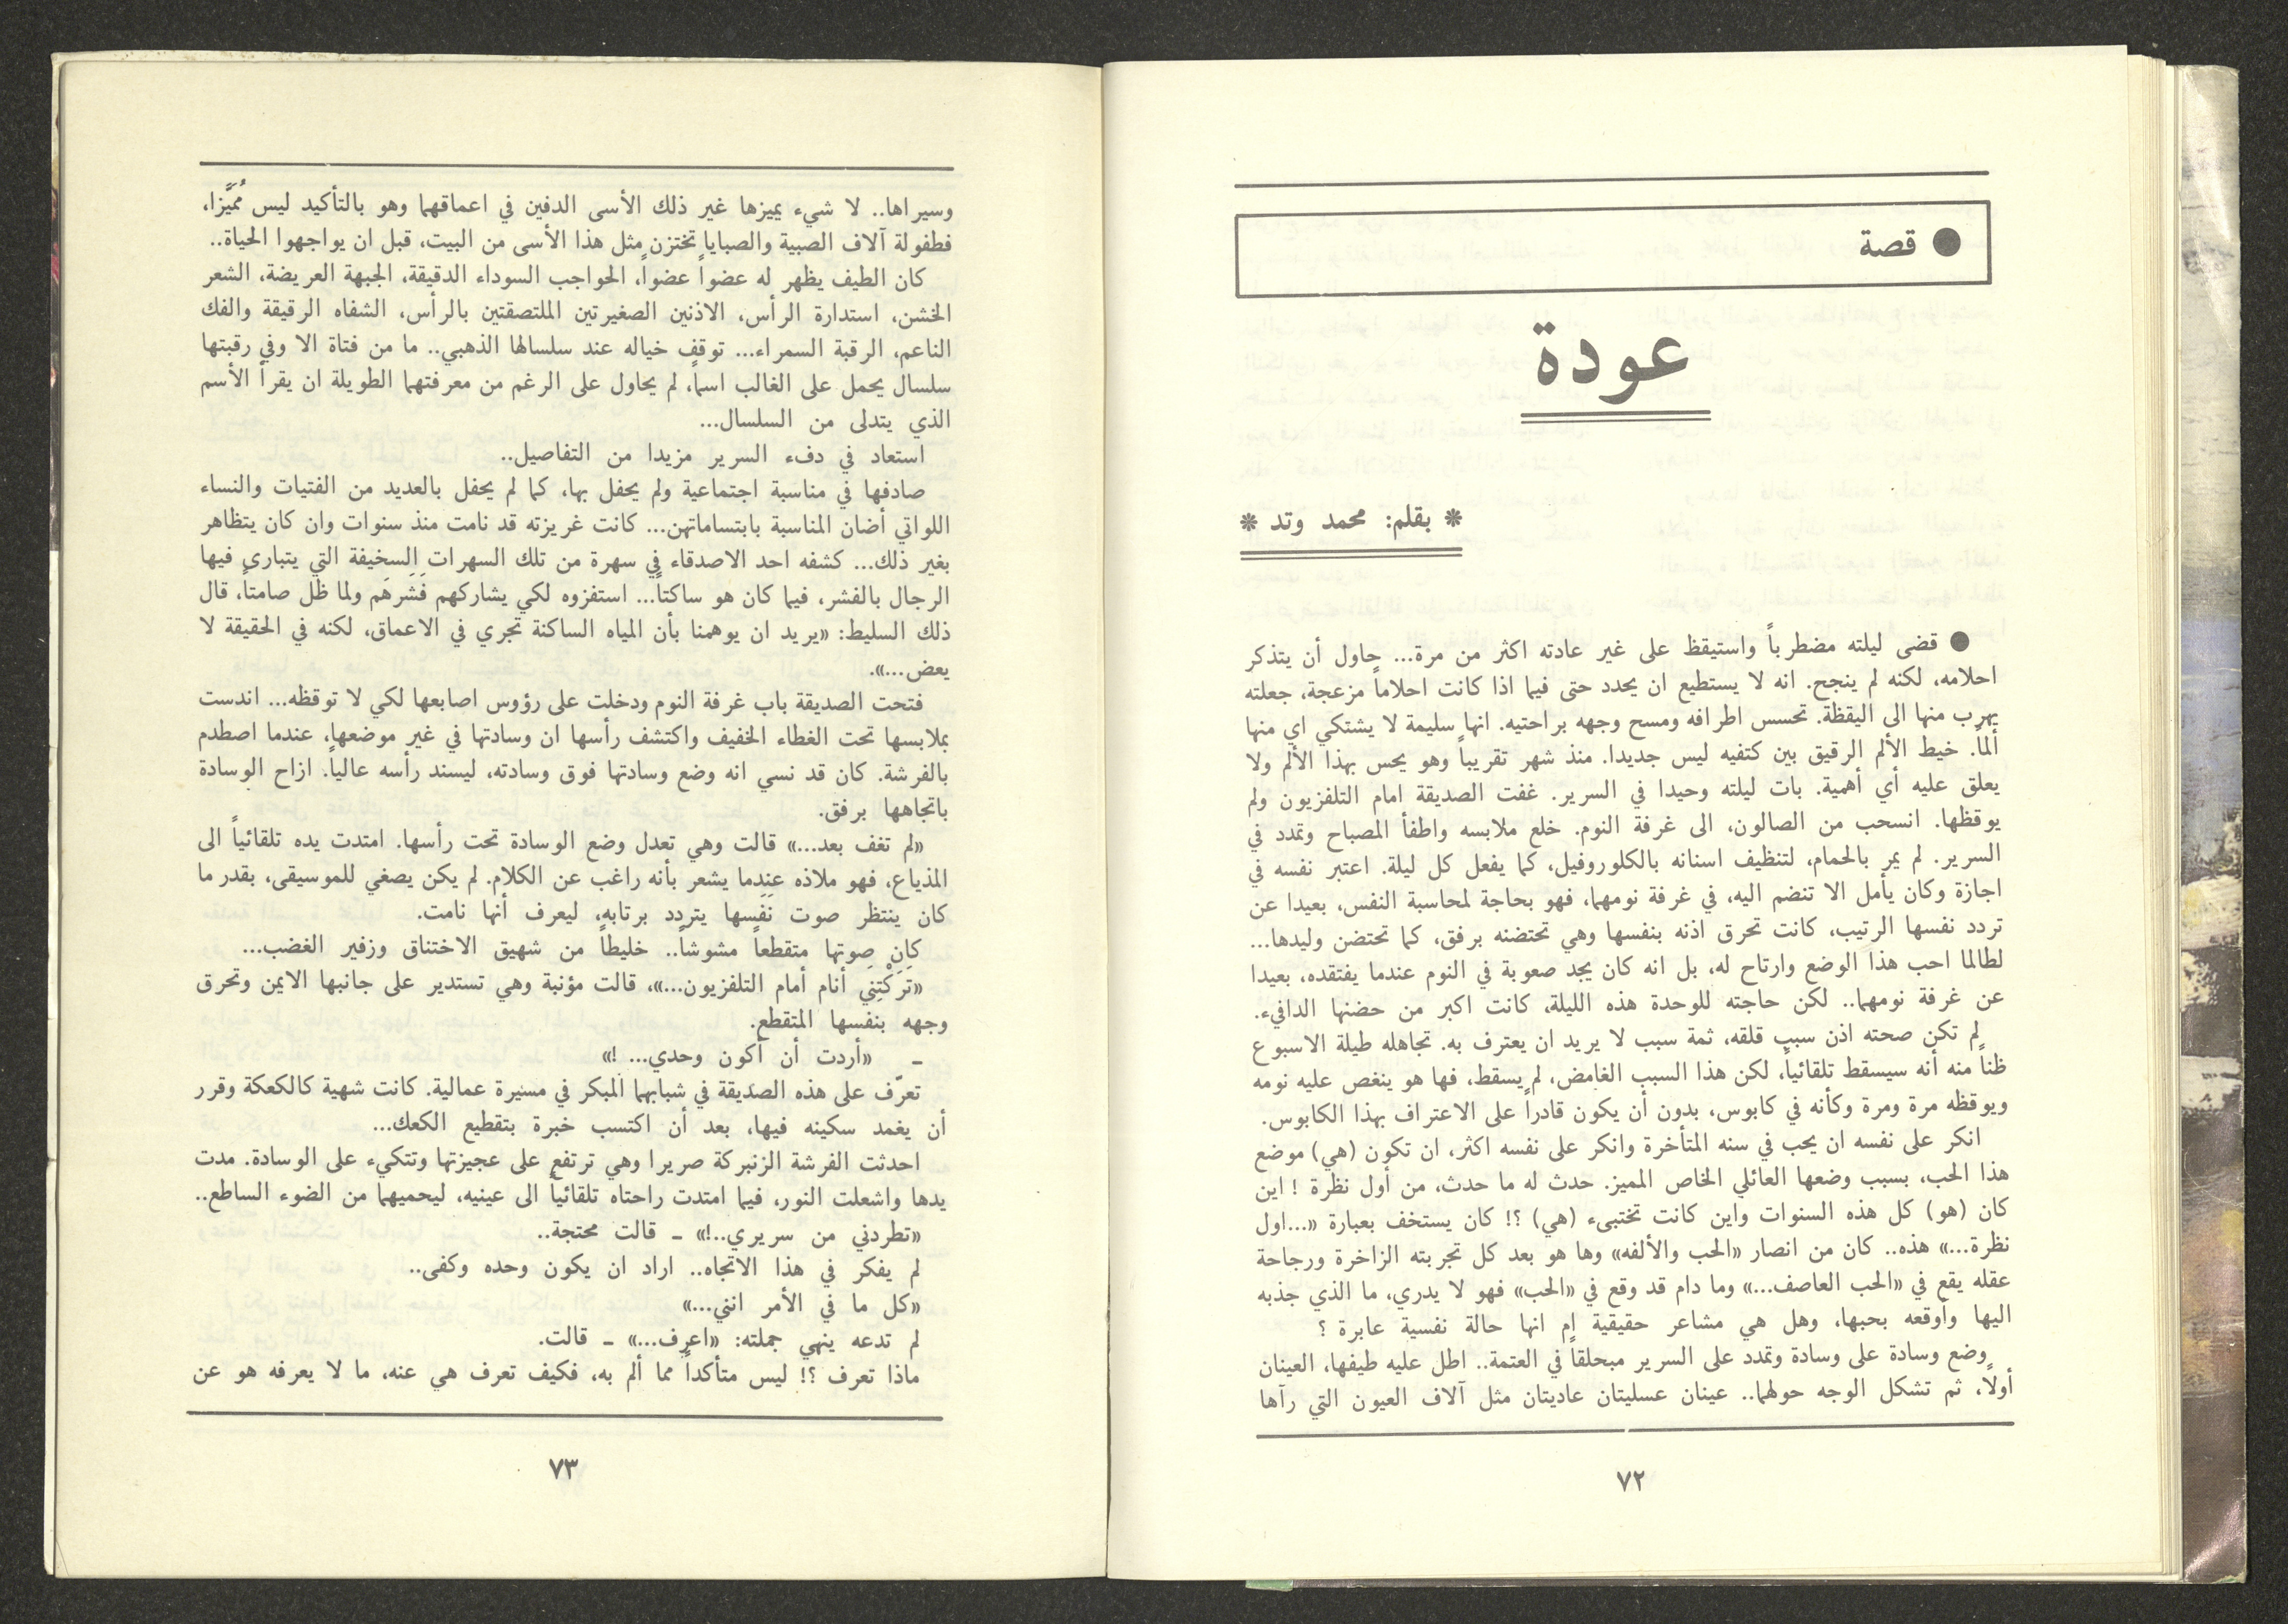 ● قصة
عودة
* بقلم: محمد وتد *
● قضى ليلته مضطرباً واستيقظ على غير عادته اكثر من مرة... حاول أن يتذكر
احلامه، لكنه لم ينجح. انه لا يستطيع ان يحدد حتى فيما اذا كانت احلاماً مزعجة، جعلته
يهرب منها الى اليقظة. تحسس اطرافه ومسح وجهه براحتيه. انها سليمة لا يشتكي اي منها
ألماً. خيط الألم الرقيق بين كتفيه ليس جديدا. منذ شهر تقريباً وهو يحس بهذا الألم ولا
يعلق عليه أي أهمية. بات ليلته وحيدا في السرير. غفت الصديقة امام التلفزيون ولم
يوقظها. انسحب من الصالون، الى غرفة النوم. خلع ملابسه واطفأ المصباح وتمدد في
السرير. لم يمر بالحمام، لتنظيف اسنانه بالكلوروفيل، كما يفعل كل ليلة. اعتبر نفسه في
اجازة وكان يأمل الا تنضم اليه، في غرفة نومهما، فهو بحاجة لمحاسبة النفس، بعيدا عن
تردد نفسها الرتيب، كانت تحرق اذنه بنفسها وهي تحتضنه برفق، كما تحتضن وليدها...
لطالما احب هذا الوضع وارتاح له، بل انه كان يجد صعوبة في النوم عندما يفتقده، بعيدا
عن غرفة نومهما.. لكن حاجته للوحدة هذه الليلة، كانت اكبر من حضنها الدافيء.
لم تكن صحته اذن سبب قلقه، ثمة سبب لا يريد ان يعترف به. تجاهله طيلة الاسبوع
ظناً منه أنه سيسقط تلقائياً، لكن هذا السبب الغامض، لم يسقط، فها هو ينغص عليه نومه
ويوقظه مرة ومرة وكأنه في كابوس، بدون أن يكون قادراً على الاعتراف بهذا الكابوس.
انكر على نفسه ان يحب في سنه المتأخرة وانكر على نفسه اكثر، ان تكون (هي) موضع
هذا الحب، بسبب وضعها العائلي الخاص المميز. حدث له ما حدث، من أول نظرة ! اين
كان (هو) كل هذه السنوات واين كانت تختبىء (هي) ؟! كان يستخف بعبارة «...اول
نظرة...» هذه.. كان من انصار «الحب والألفه» وها هو بعد كل تجربته الزاخرة ورجاحة
عقله يقع في «الحب العاصف...» وما دام قد وقع في «الحب» فهو لا يدري، ما الذي جذبه
اليها وأوقعه بحبها، وهل هي مشاعر حقيقية ام انها حالة نفسية عابرة ؟
وضع وسادة على وسادة وتمدد على السرير مبحلقاً في العتمة.. اطل عليه طيفها، العينان
أولاً، ثم تشكل الوجه حولهما.. عينان عسليتان عاديتان مثل آلاف العيون التي رآها
٧٢
وسيراها.. لا شيء يميزها غير ذلك الأسى الدفين في اعماقهما وهو بالتأكيد ليس مُمَيَّزا،
فطفولة آلاف الصبية والصبايا تختزن مثل هذا الأسى من البيت، قبل ان يواجهوا الحياة..
كان الطيف يظهر له عضواً عضواً، الحواجب السوداء الدقيقة، الجبهة العريضة، الشعر
الخشن، استدارة الرأس، الاذنين الصغيرتين الملتصقتين بالرأس، الشفاه الرقيقة والفك
الناعم، الرقبة السمراء... توقف خياله عند سلسالها الذهبي.. ما من فتاة الا وفي رقبتها
سلسال يحمل على الغالب اسماً، لم يحاول على الرغم من معرفتهما الطويلة ان يقرأ الأسم
الذي يتدلى من السلسال...
استعاد في دفء السرير مزيدا من التفاصيل..
صادفها في مناسبة اجتماعية ولم يحفل بها، كما لم يحفل بالعديد من الفتيات والنساء
اللواتي أضان المناسبة بابتساماتهن... كانت غريزته قد نامت منذ سنوات وان كان يتظاهر
بغير ذلك... كشفه احد الاصدقاء في سهرة من تلك السهرات السخيفة التي يتبارى فيها
الرجال بالفشر، فيما كان هو ساكتاً... استفزوه لكي يشاركهم فَشَرهَم ولما ظل صامتاً، قال
ذلك السليط: «يريد ان يوهمنا بأن المياه الساكنة تجري في الاعماق، لكنه في الحقيقة لا
يعض...».
فتحت الصديقة باب غرفة النوم ودخلت على رؤوس اصابعها لكي لا توقظه... اندست
بملابسها تحت الغطاء الخفيف واكتشف رأسها ان وسادتها في غير موضعها، عندما اصطدم
بالفرشة. كان قد نسي انه وضع وسادتها فوق وسادته، ليسند رأسه عالياً. ازاح الوسادة
باتجاهها برفق.
«لم تغف بعد...» قالت وهي تعدل وضع الوسادة تحت رأسها. امتدت يده تلقائياً الى
المذياع، فهو ملاذه عندما يشعر بأنه راغب عن الكلام. لم يكن يصغي للموسيقى، بقدر ما
كان ينتظر صوت نَفَسها يتردد برتابه، ليعرف أنها نامت.
كان صوتها متقطعاً مشوشاً.. خليطاً من شهيق الاختناق وزفير الغضب...
«تَرَكْتِنَي أنام أمام التلفزيون...»، قالت مؤنبة وهي تستدير على جانبها الايمن وتحرق
وجهه بنفسها المتقطع.
ـ «أردت أن أكون وحدي... !»
تعرّف على هذه الصديقة في شبابهما المبكر في مسيرة عمالية. كانت شهية كالكعكة وقرر
أن يغمد سكينه فيها، بعد أن اكتسب خبرة بتقطيع الكعك...
احدثت الفرشة الزنبركة صريرا وهي ترتفع على عجيزتها وتتكيء على الوسادة. مدت
يدها واشعلت النور، فيما امتدت راحتاه تلقائياً الى عينيه، ليحميهما من الضوء الساطع..
«تطردني من سريري..!» ـ قالت محتجة..
لم يفكر في هذا الاتجاه.. اراد ان يكون وحده وكفى..
«كل ما في الأمر انني...»
لم تدعه ينهي جملته: «اعرف...» ـ قالت.
ماذا تعرف ؟! ليس متأكداً مما ألم به، فكيف تعرف هي عنه، ما لا يعرفه هو عن
٧٣